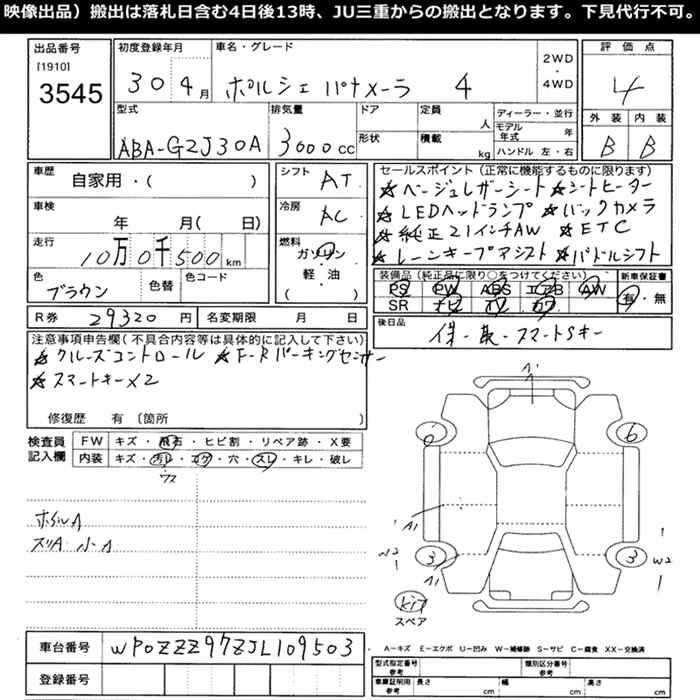 映像出品）搬出は落札日含む4日後13時、JU三重からの搬出となります。下見代行不可。
出品番号 [1910] 3545
初度登録年月 30 4月
車名・グレード ポルシェ パナメーラ 4
2WD・4WD
評価点 4
型式 ABA-G2J30A
排気量 3000cc
ドア 定員 人
形状 積載 kg
ディーラー・並行
モデル年式 年
ハンドル 左・右
外装 内装
B B
車歴 自家用・( )
車検 年 月( 日)
走行 10万0千500km
色 ブラウン 色替 色コード
シフト AT
冷房 AC
燃料 ガソリン
軽・油
( )
セールスポイント（正常に機能するものに限ります）
★ベージュレザーシート ★シートヒーター
★LEDヘッドランプ ★バックカメラ
★純正21インチAW ★ETC
★レーンキープアシスト ★パドルシフト
装備品（純正品に限り○をつけてください）
PS PW ABS エアB AW
SR ナビ カワ
新車保証書 有・無
R券 29320円 名変期限 月 日
後日品 保・取・スマートSキー
注意事項申告欄(不具合内容等は具体的に記入して下さい)
★クルーズコントロール ★F・Rパーキングセンサー
★スマートキー×2
修復歴 有 〔箇所 〕
検査員記入欄
FW キズ・飛石・ヒビ割・リペア跡・X要
内装 キズ・汚れ・コゲ・穴・スレ・キレ・破レ
ウス
ホイルA
スリA 小A
A1
6 6
A1
W2 3 3 W2
A1
kit
スペア
車台番号 WP0ZZZ97ZJL109503
登録番号
A－キズ E－エクボ U－凹み W－補修跡 S－サビ C－腐食 XX－交換済
型式指定番号 参考 類別区分番号 参考
車庫証明用 参考 長さ cm 幅 cm 高さ cm